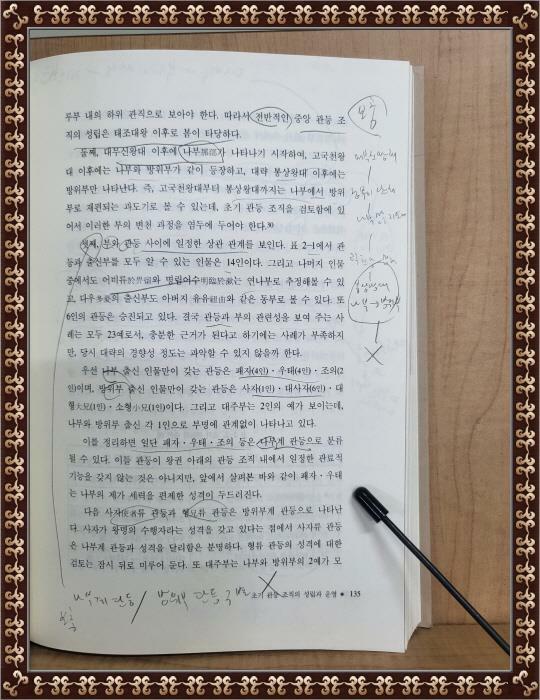 루부 내의 하위 관직으로 보아야 한다. 따라서 전반적인 중앙 관등 조
직의 성립은 태조대왕 이후로 봄이 타당하다.
둘째, 대무신왕대 이후에 나부那部가 나타나기 시작하여, 고국천왕
대 이후에는 나부와 방위부가 같이 등장하고, 대략 봉상왕대 이후에는
방위부만 나타난다. 즉, 고국천왕대부터 봉상왕대까지는 나부에서 방위
부로 재편되는 과도기로 볼 수 있는데, 초기 관등 조직을 검토함에 있
어서 이러한 부의 변천 과정을 염두에 두어야 한다.30
셋째, 부와 관등 사이에 일정한 상관 관계를 보인다. 표 2-1에서 관
등과 출신부를 모두 알 수 있는 인물은 14인이다. 그리고 나머지 인물
중에서도 어비류於畀留와 명림어수明臨於漱는 연나부로 추정해볼 수 있
고, 다우多優의 출신부도 아버지 유유紐由와 같은 동부로 볼 수 있다. 또
6인의 관등은 승진되고 있다. 결국 관등과 부의 관련성을 보여 주는 사
례는 모두 23예로서, 충분한 근거가 된다고 하기에는 사례가 부족하지
만, 당시 대략의 경향성 정도는 파악할 수 있지 않을까 한다.
우선 나부 출신 인물만이 갖는 관등은 패자(4인)·우태(4인)·조의(2
인)이며, 방위부 출신 인물만이 갖는 관등은 사자(1인)·대사자(6인)·대
형大兄(1인)·소형小兄(1인)이다. 그리고 대주부는 2인의 예가 보이는데,
나부와 방위부 출신 각 1인으로 부명에 관계없이 나타나고 있다.
이를 정리하면 일단 패자·우태·조의 등은 나부계 관등으로 분류
될 수 있다. 이들 관등이 왕권 아래의 관등 조직 내에서 일정한 관료적
기능을 갖지 않는 것은 아니지만, 앞에서 살펴본 바와 같이 패자·우태
는 나부의 제가 세력을 편제한 성격이 두드러진다.
다음 사자使者류 관등과 형兄류 관등은 방위부계 관등으로 나타난
다. 사자가 왕명의 수행자라는 성격을 갖고 있다는 점에서 사자류 관등
은 나부계 관등과 성격을 달리함은 분명하다. 형류 관등의 성격에 대한
검토는 잠시 뒤로 미루어 둔다. 또 대주부는 나부와 방위부의 2예가 모
나부계 관등 / 방위부 관등 구분
초기 관등 조직의 성립과 운영 ● 135